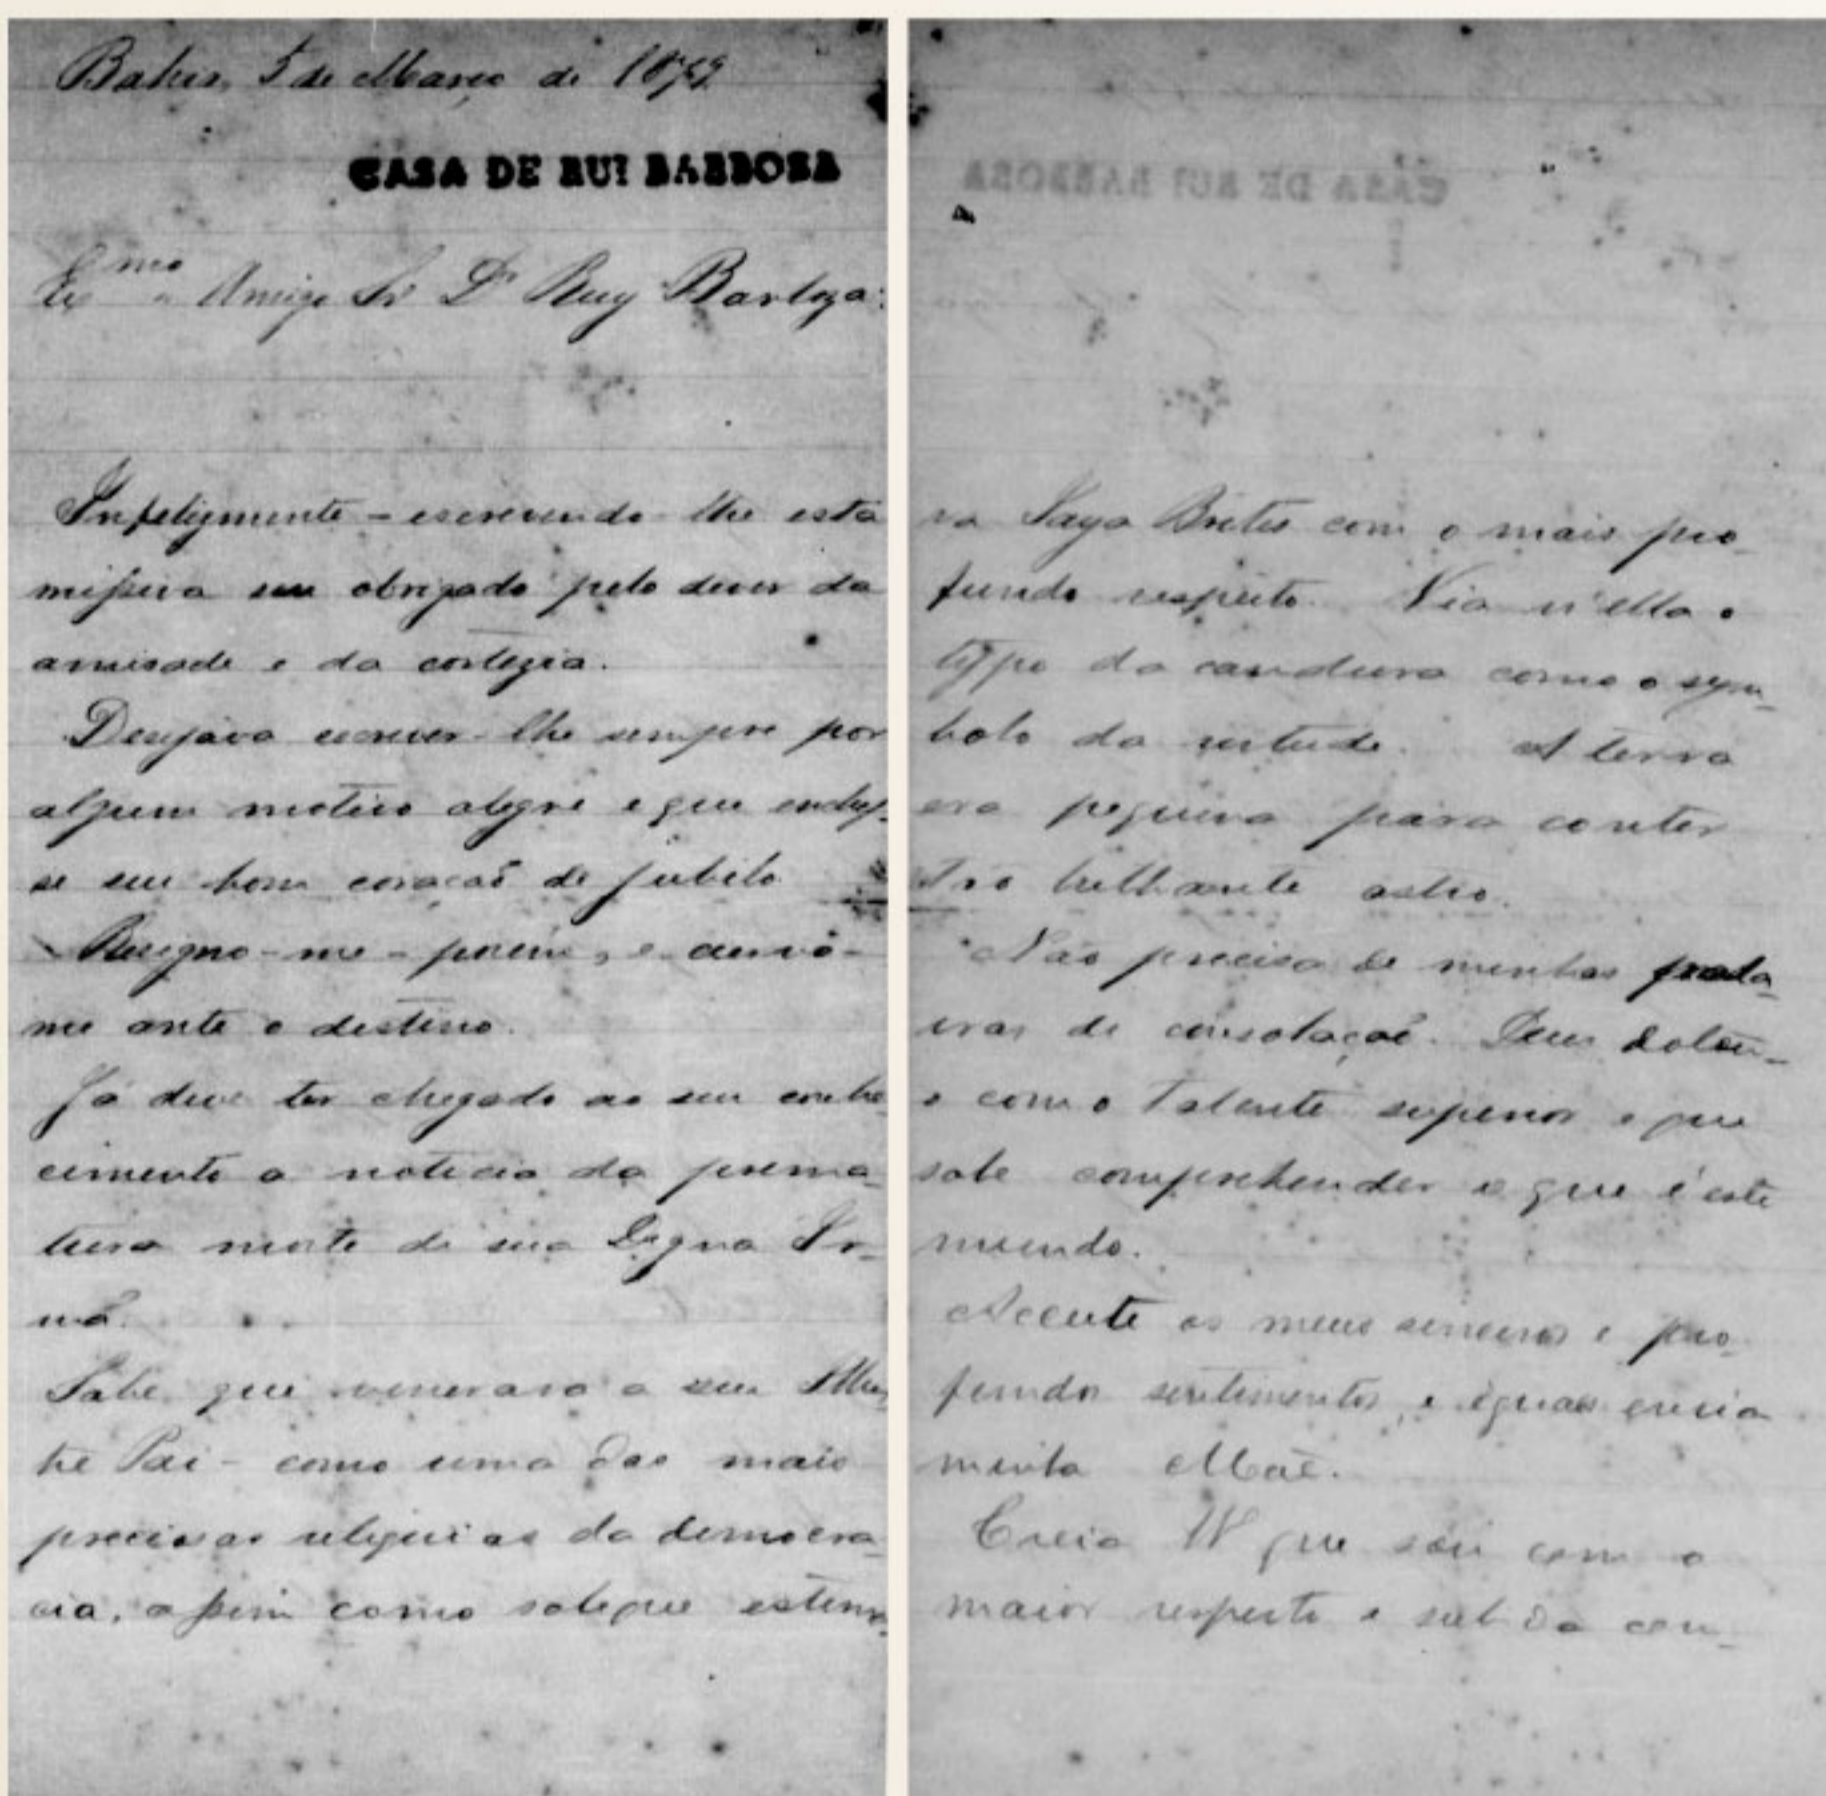 Bahia, 5 de Março de 1879
CASA DE RUI BARBOSA
Ex.mo Amigo Sr Dr Ruy Barboza:
Infelizmente - escrevendo-lhe esta
missiva sou obrigado pelo dever da
amisade e da cortezia.
Desejava escrever-lhe sempre por
algum motivo alegre e que enches-
se seu bom coração de jubilo.
Resigno-me - porém, e curvo-
me ante o destino.
Já deve ter chegado ao seu conhe-
cimento a noticia da prema-
tura morte de sua Digna Ir-
mã.
Sabe que venerava a seu Illus-
tre Pai - como uma das mais
preciosas reliquias da democra-
cia, assim como sabe que estima-
va com o mais pro-
fundo respeito. Via n'ella o
typo da candura como o sym-
bolo da virtude. A terra
era pequena para conter
tão brilhante astro.
Não precisa de minhas pala-
vras de consolação. Deus
o com o talento superior e que
sabe comprehender o que é este
mundo.
Acceite os meus sinceros e pro-
fundos sentimentos, e iguaes envia
minha Mãe.
Creia que sou com o
maior respeito e subida con-